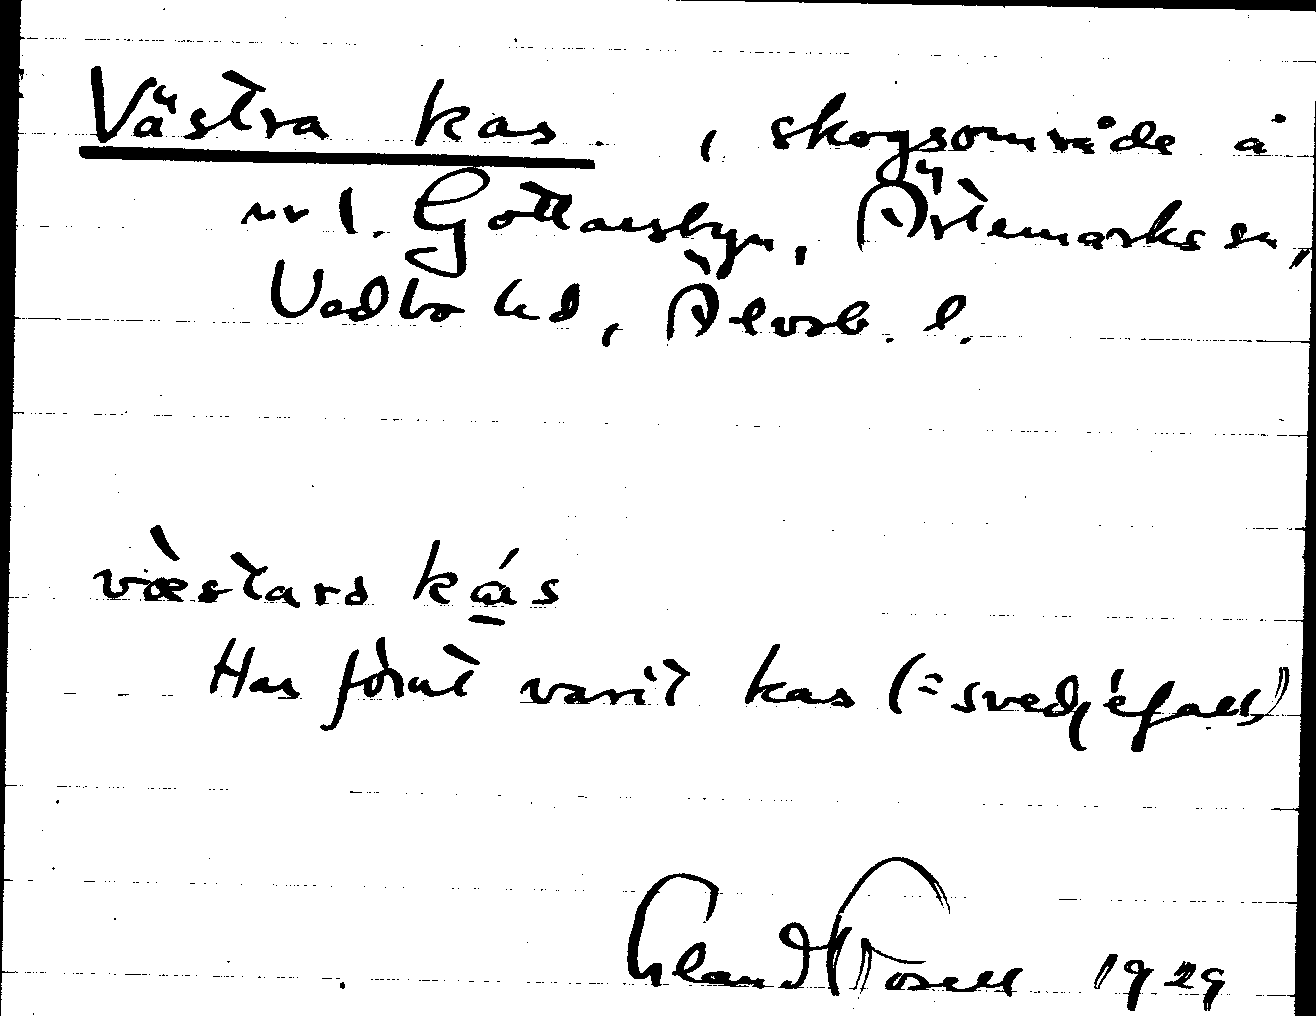 Västra kas, skogsområde å
nr 1. Gottarsbyn, Ärtemarks sn,
Vedbo hd, Älvsb. l.
væ̀starə kás
Har förut varit kas (= svedjefall)
Erland Rosell 1929